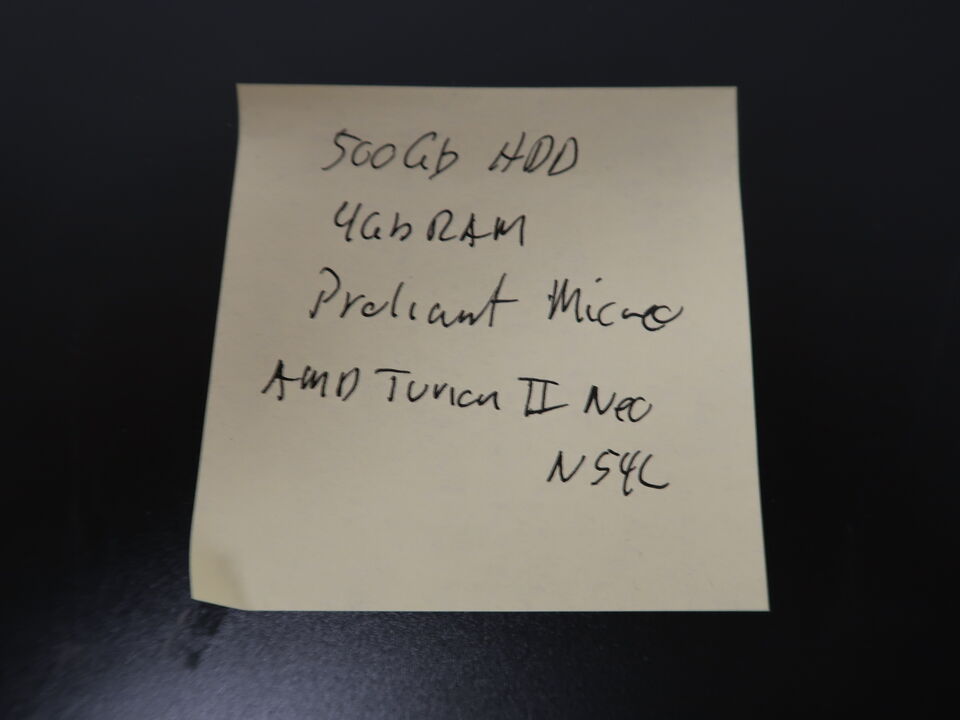 500Gb HDD
4Gb RAM
Proliant Micro
AMD Turion II Neo
N54L